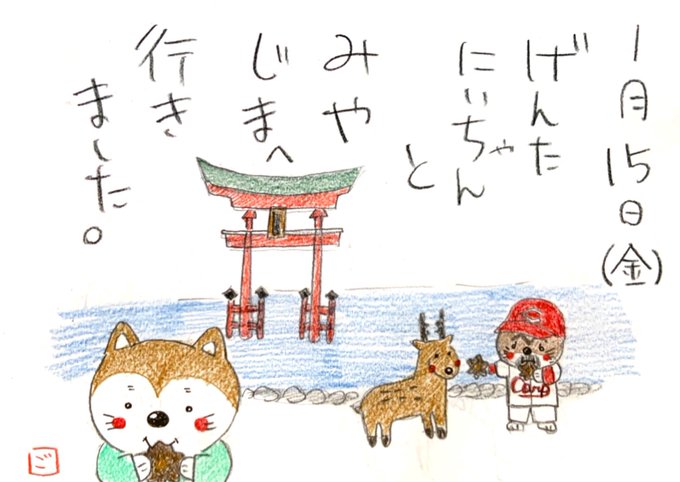 1月15日(金)
げんた
にいちゃん
と
みや
じまへ
行き
ました。
C
Carp
ご